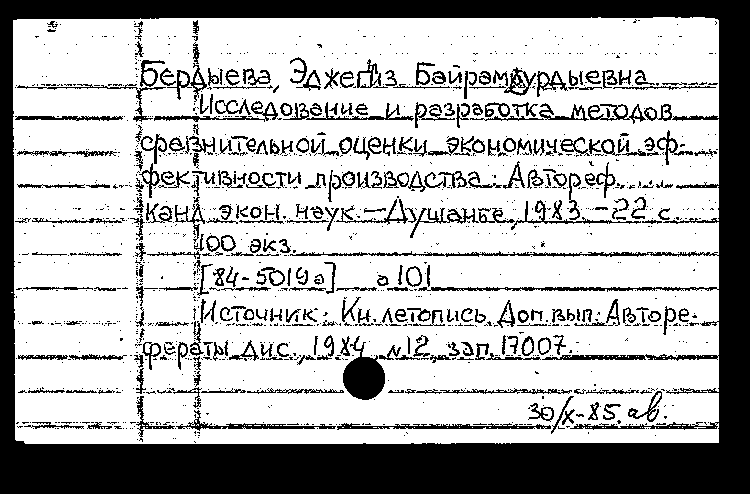 Бердыева, Эджегыз Байрамдурдыевна
Исследование и разработка методов
сравнительной оценки экономической эф-
фективности производства: Автореф. ....
канд. экон. наук. — Душанбе, 1983. – 22 с.
100 экз.
[84-5019а] а 101
Источник: Кн. летопись. Доп. вып: Авторе-
фераты дис., 1984, №12, зап. 17007.
30/X-85. ав.